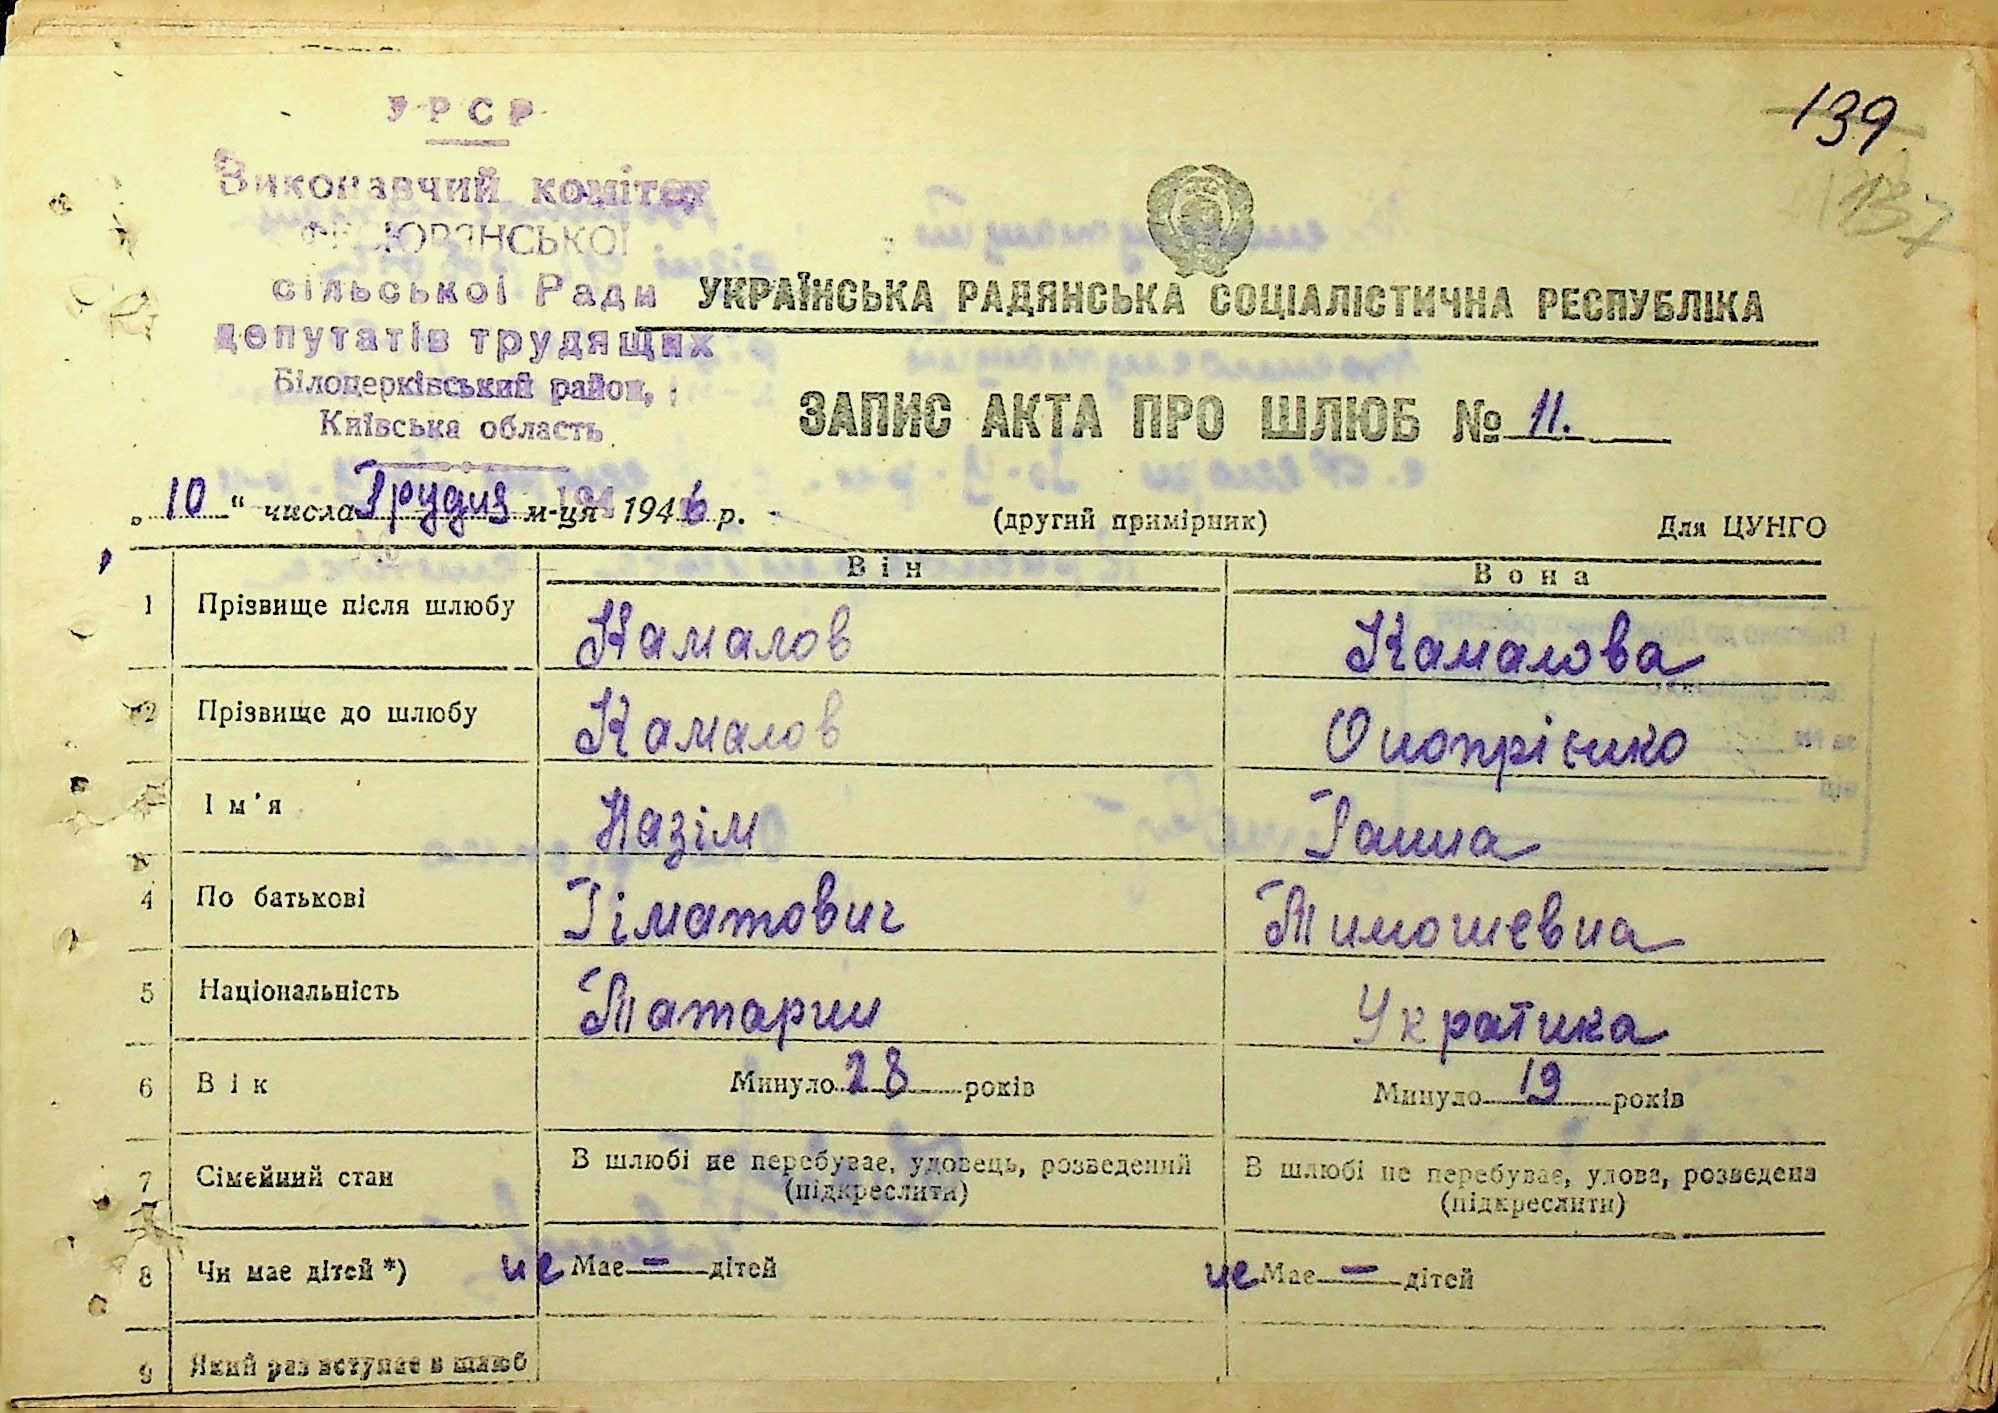 139
137
УРСР
Виконавчий комітет
сільської Ради
депутатів трудящих
Білоцерківський район,
Київська область
УКРАЇНСЬКА РАДЯНСЬКА СОЦІАЛІСТИЧНА РЕСПУБЛІКА
ЗАПИС АКТА ПРО ШЛЮБ № 11.
„10" числа Грудня м-ця 1946 р. (другий примірник) Для ЦУНГО
Він Вона
1 Прізвище після шлюбу Камалов Камалова
2 Прізвище до шлюбу Камалов Онопрієнко
Ім'я Назім Ганна
4 По батькові Гіматович Тимошевна
5 Національність Татарин Украінка
6 Вік Минуло 28 років Минуло 19 років
7 Сімейний стан В шлюбі не перебуває, удовець, розведений В шлюбі не перебуває, удова, розведена
(підкреслити) (підкреслити)
8 Чи має дітей *) не Має — дітей не Має — дітей
9 Який раз вступає в шлюб